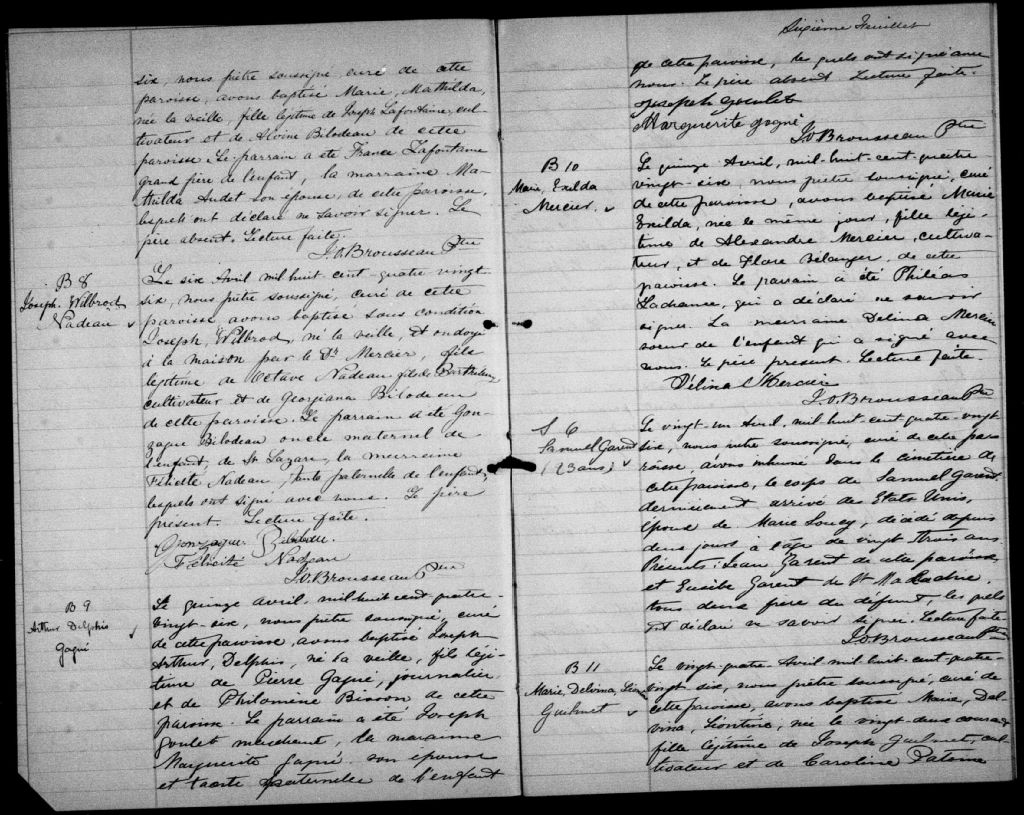 six, nous prêtre soussigné, curé de cette
paroisse, avons baptisé Marie, Mathilda,
née la veille, fille légitime de Joseph Lafontaine, cul-
tivateur et de Bilodeau de cette
paroisse. Le parrain a été France Lafontaine
grand père de l'enfant, la marraine Ma-
thilda Audet son épouse, de cette paroisse,
lesquels ont déclaré ne savoir signer. Le
père absent. Lecture faite.
J. O. Brousseau Ptre
B 8
Joseph. Wilbrod
Nadeau
Le six Avril mil huit cent quatre vingt
six, nous prêtre soussigné, curé de cette
paroisse avons baptisé sous condition
Joseph, Wilbrod, né la veille, et ondoyé
à la maison par le Dr Mercier, fils
légitime de Octave Nadeau fils de
cultivateur et de Georgiana Bilodeau
de cette paroisse. Le parrain a été Gon-
zague Bilodeau oncle maternel de
l'enfant, de St Lazare, la marraine
Nadeau, tante paternelle de l'enfant,
lesquels ont signé avec nous. Le père
présent. Lecture faite.
Gonzague Bilodeau.
Félicité Nadeau
J. O. Brousseau Ptre
B 9
Arthur Delphis
Gagné
Le quinze avril, mil huit cent quatre-
vingt-six, nous prêtre soussigné, curé
de cette paroisse, avons baptisé Joseph
Arthur, Delphis, né la veille, fils légi-
time de Pierre Gagné, journalier
et de Philomène Bisson de cette
paroisse. Le parrain a été Joseph
Goulet marchand, la marraine
Marguerite Gagné son épouse
et tante paternelle de l'enfant
Sixième Feuillet
de cette paroisse, les quels ont signé avec
nous. Le père absent Lecture faite.
Joseph Goulet
Marguerite gagné
J. O. Brousseau Ptre
B 10
Marie, Exilda
Mercier.
Le quinze Avril, mil-huit-cent-quatre
vingt-six, nous prêtre soussigné, curé
de cette paroisse, avons baptisé Marie
Exilda, née le même jour, fille légi-
time de Alexandre Mercier, cultiva-
teur, et de Flore Bélanger, de cette
paroisse. Le parrain a été Philéas
Lachance, qui a déclaré ne savoir
signer. La marraine Delina Mercier
soeur de l'enfant qui a signé avec
nous. Le père présent. Lecture faite.
Délina Mercier
J. O. Brousseau Ptre
S 6
Samuel Garent
(23 ans)
Le vingt-un Avril, mil-huit-cent-quatre-vingt
six, nous prêtre soussigné, curé de cette pa-
roisse, avons inhumé dans le cimetière de
cette paroisse, le corps de Samuel Garent
dernièrement arrivé des États Unis,
époux de Marie Soucy, décédé depuis
deux jours à l'âge de vingt trois ans
Présents: Jean Garent de cette paroisse
et Eusèbe Garent de St Malachie,
tous deux frères du défunt, les quels
ont déclaré ne savoir signer. Lecture faite
J. O. Brousseau Ptre
B 11
Marie, Delvina,
Guilmet
Le vingt-quatre Avril mil-huit-cent-quatre-
vingt six, nous prêtre soussigné, curé de
cette paroisse, avons baptisé Marie, Del-
vina, Léontine, née le vingt deux courant
fille légitime de Joseph Guilmet, cul-
tivateur et de Caroline